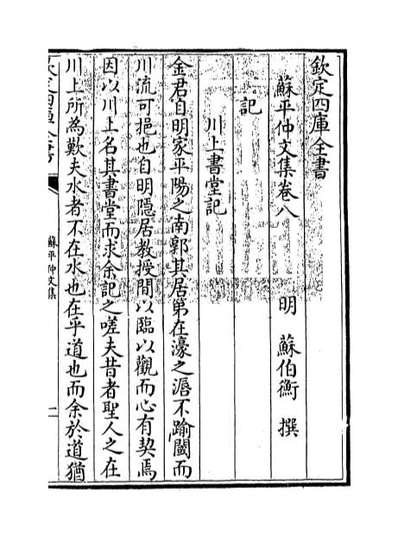 欽定四庫全書
蘇平仲文集卷八
明 蘇伯衡 撰
記
川上書堂記
金君自明家平陽之南郭其居第在濠之漘不踰閾而
川流可挹也自明隱居教授間以臨以觀而心有契焉
因以川上名其書堂而求余記之嗟夫昔者聖人之在
川上所為歎夫水者不在水也在乎道也而余於道猶
欽定四庫全書
蘇平仲文集